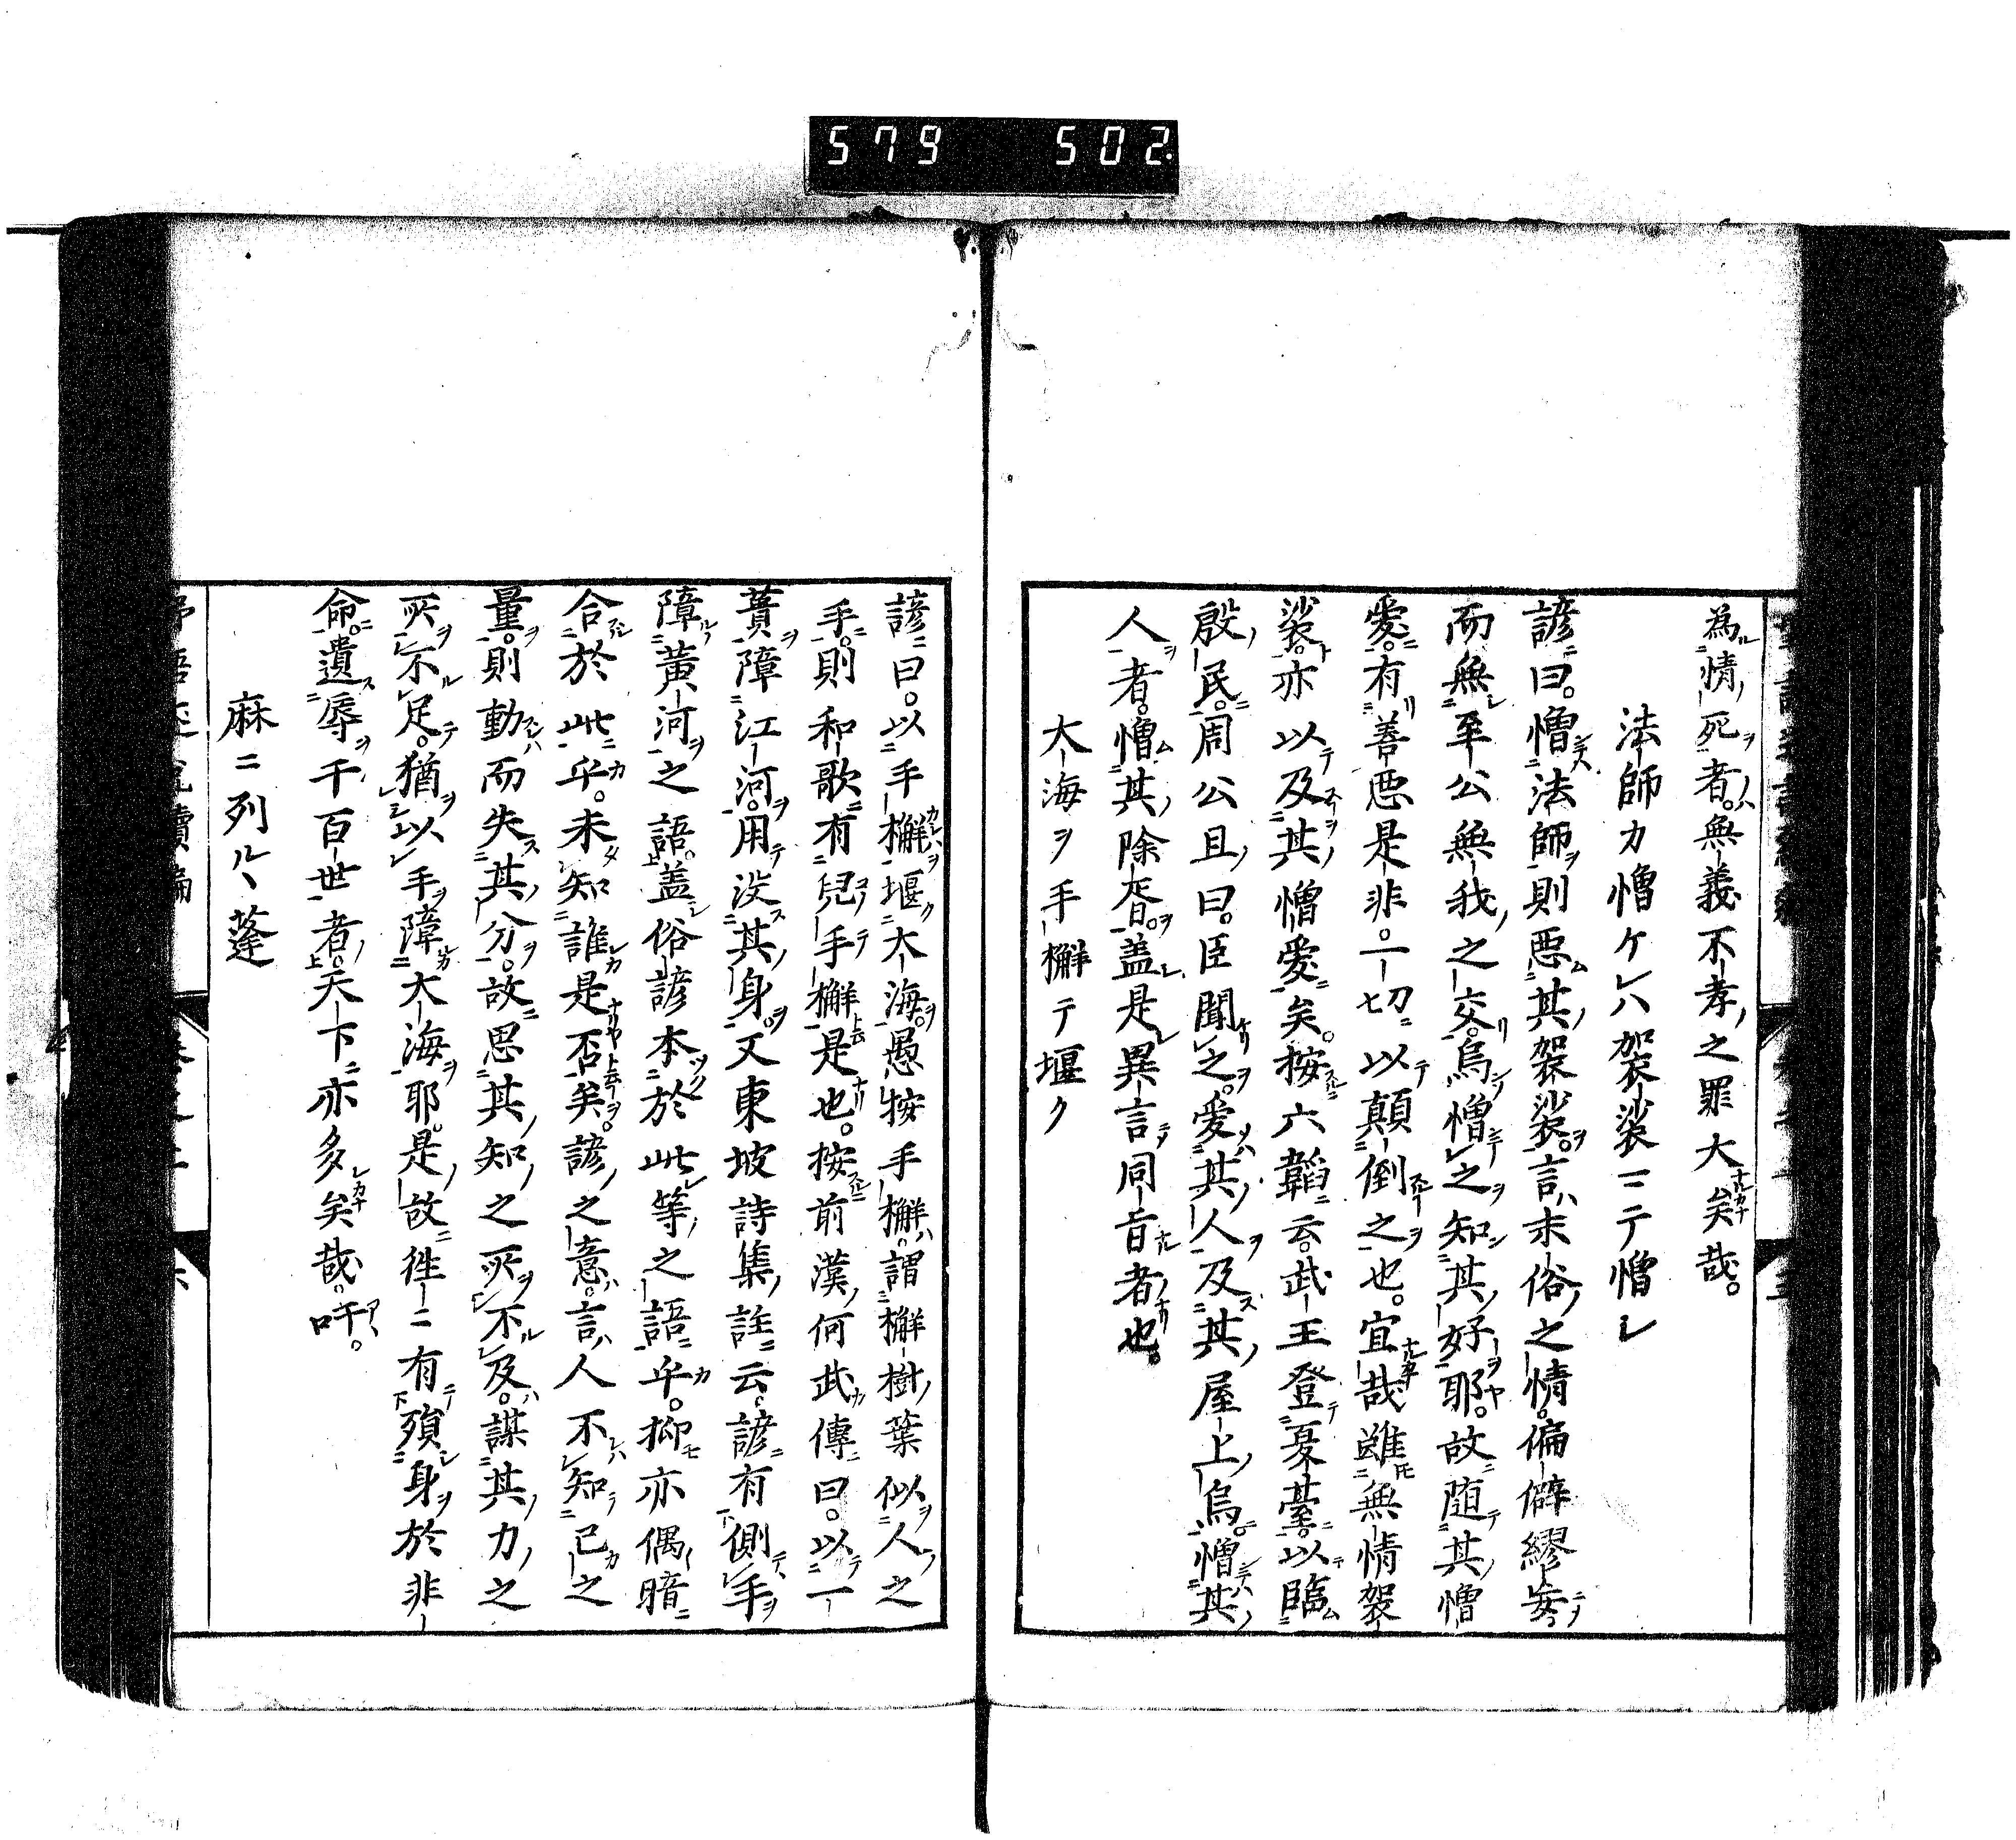 579 502
為情死者。無義不孝之罪大矣哉。
法師カ憎ケレハ袈裟ニテ憎シ
諺曰。憎法師則惡其袈裟。言末俗之情。偏僻繆妄。
而無至公無我之交。烏憎之知其好耶。故随其憎
愛。有善惡是非。一切以顛倒之也。宜哉雖無情袈
裟。亦以及其憎愛矣。按六韜云。武王登夏臺。以臨
殷民。周公且曰。臣聞之。愛其人及其屋上烏。憎其
人者。憎其除胥。蓋是異言同旨者也。
大海ヲ手檞テ堰ク
諺曰。以手檞堰大海。愚按手檞。謂檞樹葉似人之
手。則和歌有兒手檞是也。按前漢何武傳曰。以一
蕢障江河。用沒其身。又東坡詩集註云。諺有側手
障黄河之語。盖俗諺本於此等之語乎。抑亦偶暗
合於此乎。未知誰是否矣。諺之意。言人不知己之
量。則動而失其分。故思其知之所不及。謀其力之
所不足。猶以手障大海耶。是故徃々有殞身於非
命。遺辱千百世者。天下亦多矣哉。吁。
麻ニ列ルヽ蓬